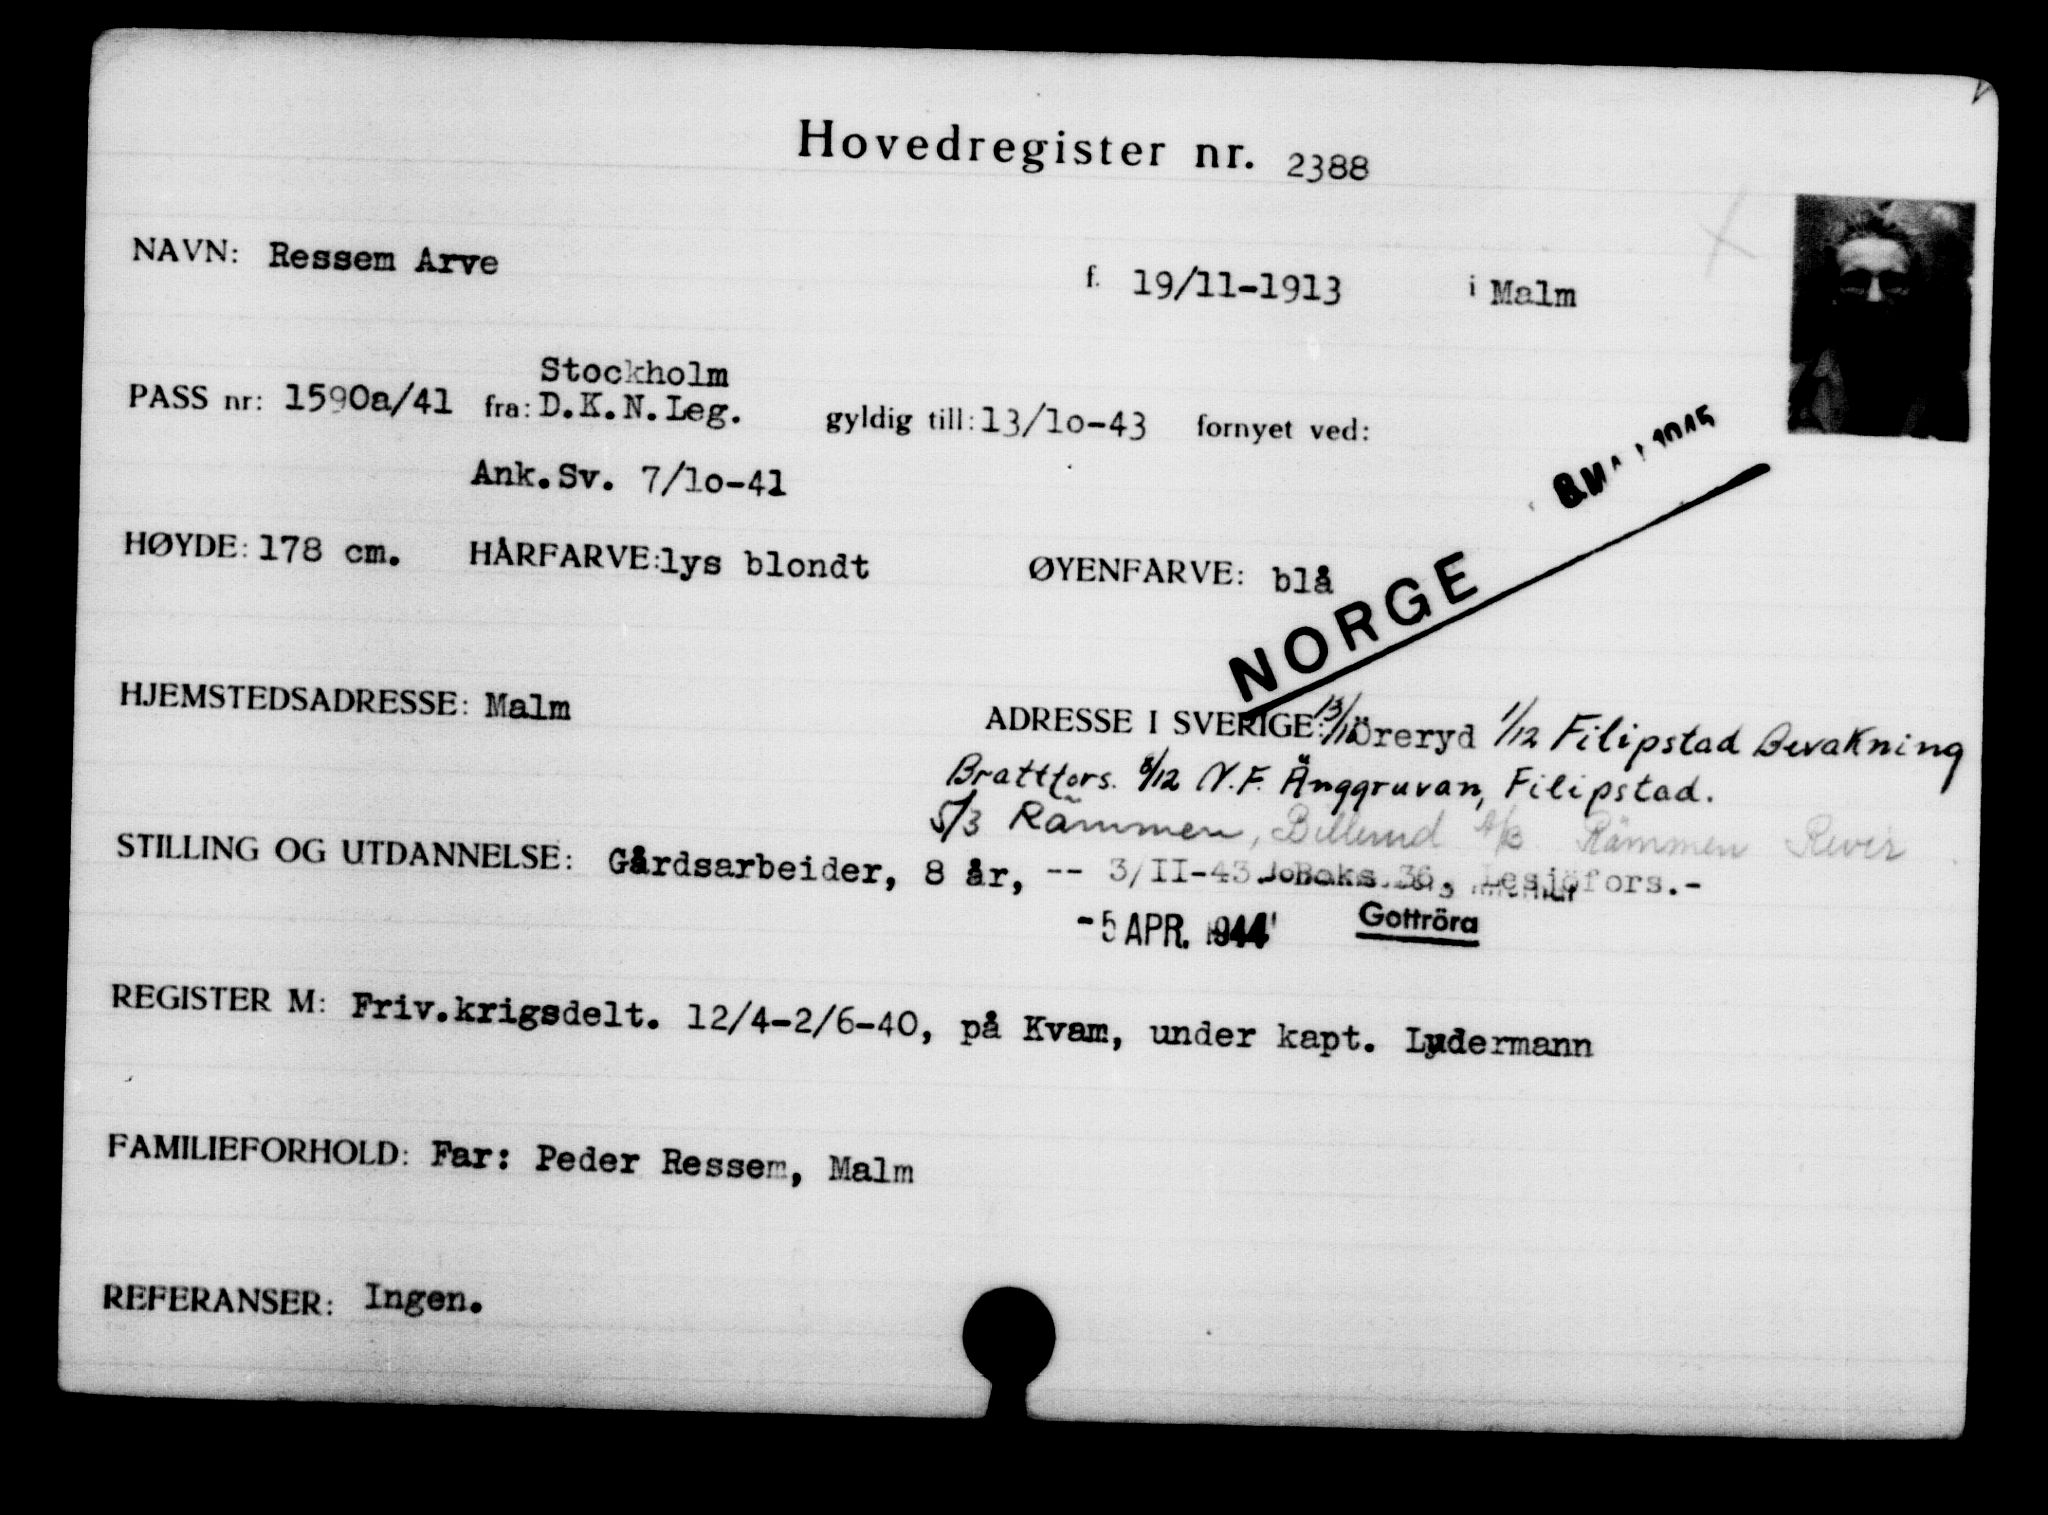 Hovedregister nr. 2388
NAVN: Ressem Arve f. 19/11-1913 i Malm
Stockholm
PASS nr: 1590a/41 fra: D.K.N.Leg. gyldig till: 13/10-43 fornyet ved:
Ank.Sv. 7/10-41
1945
HØYDE: 178 cm. HÅRFARVE: lys blondt ØYENFARVE: blå
NORGE
HJEMSTEDSADRESSE: Malm ADRESSE I SVERIGE: 13/10 Öreryd 1/12 Filipstad Bevakning
Brattfors. 8/12 N.F. Änggruvan, Filipstad.
5/3 Rämmen, Billerud A/B Rämmen Revir
STILLING OG UTDANNELSE: Gårdsarbeider, 8 år, -- 3/II-43. Boks 36, Lesjöfors.-
-5 APR. 1944 Gottröra
REGISTER M: Friv.krigsdelt. 12/4-2/6-40, på Kvam, under kapt. Lydermann
FAMILIEFORHOLD: Far: Peder Ressem, Malm
REFERANSER: Ingen.